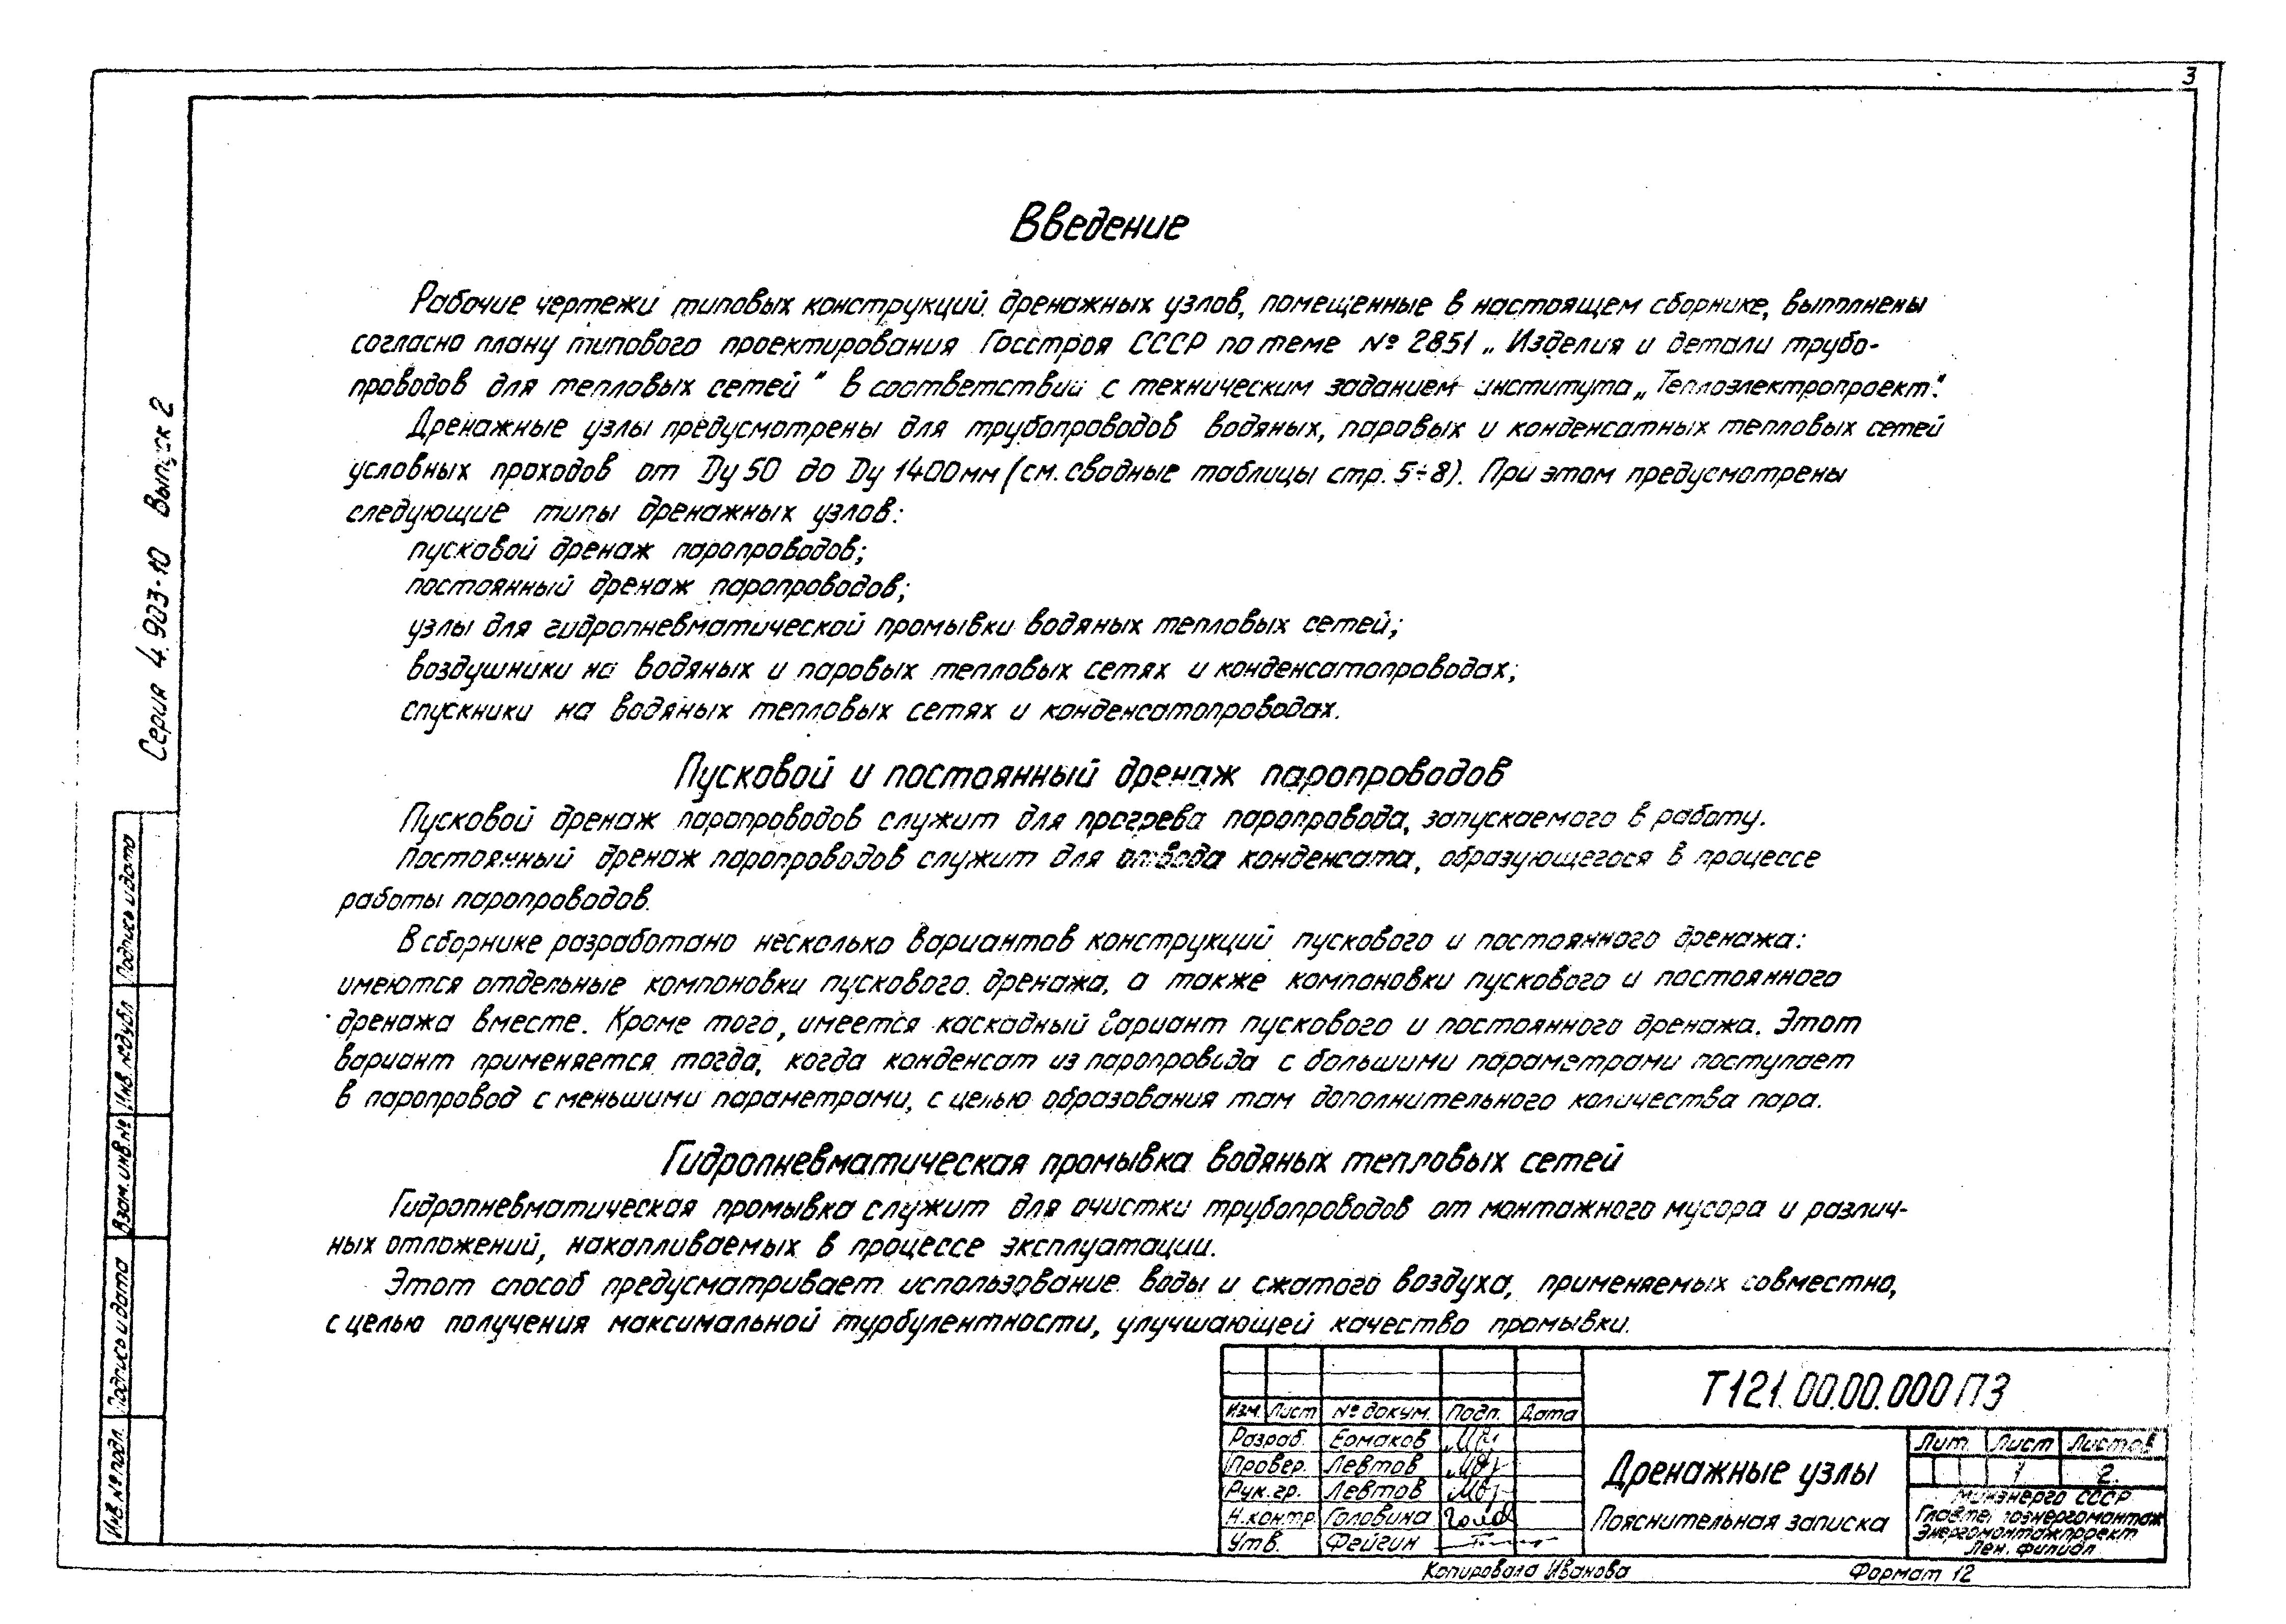 3
Введение
Рабочие чертежи типовых конструкций дренажных узлов, помещенные в настоящем сборнике, выполнены
согласно плану типового проектирования Госстроя СССР по теме № 2851 „Изделия и детали трубо-
проводов для тепловых сетей" в соответствии с техническим заданием института „Теплоэлектропроект".
Дренажные узлы предусмотрены для трубопроводов водяных, паровых и конденсатных тепловых сетей
условных проходов от Ду 50 до Ду 1400мм (см. сводные таблицы стр. 5÷8). При этом предусмотрены
следующие типы дренажных узлов:
пусковой дренаж паропроводов;
постоянный дренаж паропроводов;
узлы для гидропневматической промывки водяных тепловых сетей;
воздушники на водяных и паровых тепловых сетях и конденсатопроводах;
спускники на водяных тепловых сетях и конденсатопроводах.
Пусковой и постоянный дренаж паропроводов
Пусковой дренаж паропроводов служит для прогрева паропровода, запускаемого в работу.
Постоянный дренаж паропроводов служит для отвода конденсата, образующегося в процессе
работы паропроводов.
В сборнике разработано несколько вариантов конструкций пускового и постоянного дренажа:
имеются отдельные компоновки пускового дренажа, а также компановки пускового и постоянного
дренажа вместе. Кроме того, имеется каскадный вариант пускового и постоянного дренажа. Этот
вариант применяется тогда, когда конденсат из паропровода с большими параметрами поступает
в паропровод с меньшими параметрами, с целью образования там дополнительного количества пара.
Гидропневматическая промывка водяных тепловых сетей
Гидропневматическая промывка служит для очистки трубопроводов от монтажного мусора и различ-
ных отложений, накапливаемых в процессе эксплуатации.
Этот способ предусматривает использование воды и сжатого воздуха, применяемых совместно,
с целью получения максимальной турбулентности, улучшающей качество промывки.
Серия 4.903-10 Выпуск 2
Подпись и дата
Инв. № дубл.
Взам. инв. №
Подпись и дата
Инв. № подл.
Т121.00.00.000 ПЗ
Изм. Лист № докум. Подп. Дата
Разраб. Ермаков
Провер. Левтов
Рук. гр. Левтов
Н. контр. Головина
Утв. Фейгин
Дренажные узлы
Пояснительная записка
Лит. Лист Листов
1 2
Минэнерго СССР
Главтеплоэнергомонтаж
Энергомонтажпроект
Лен. филиал
Копировала Иванова Формат 12